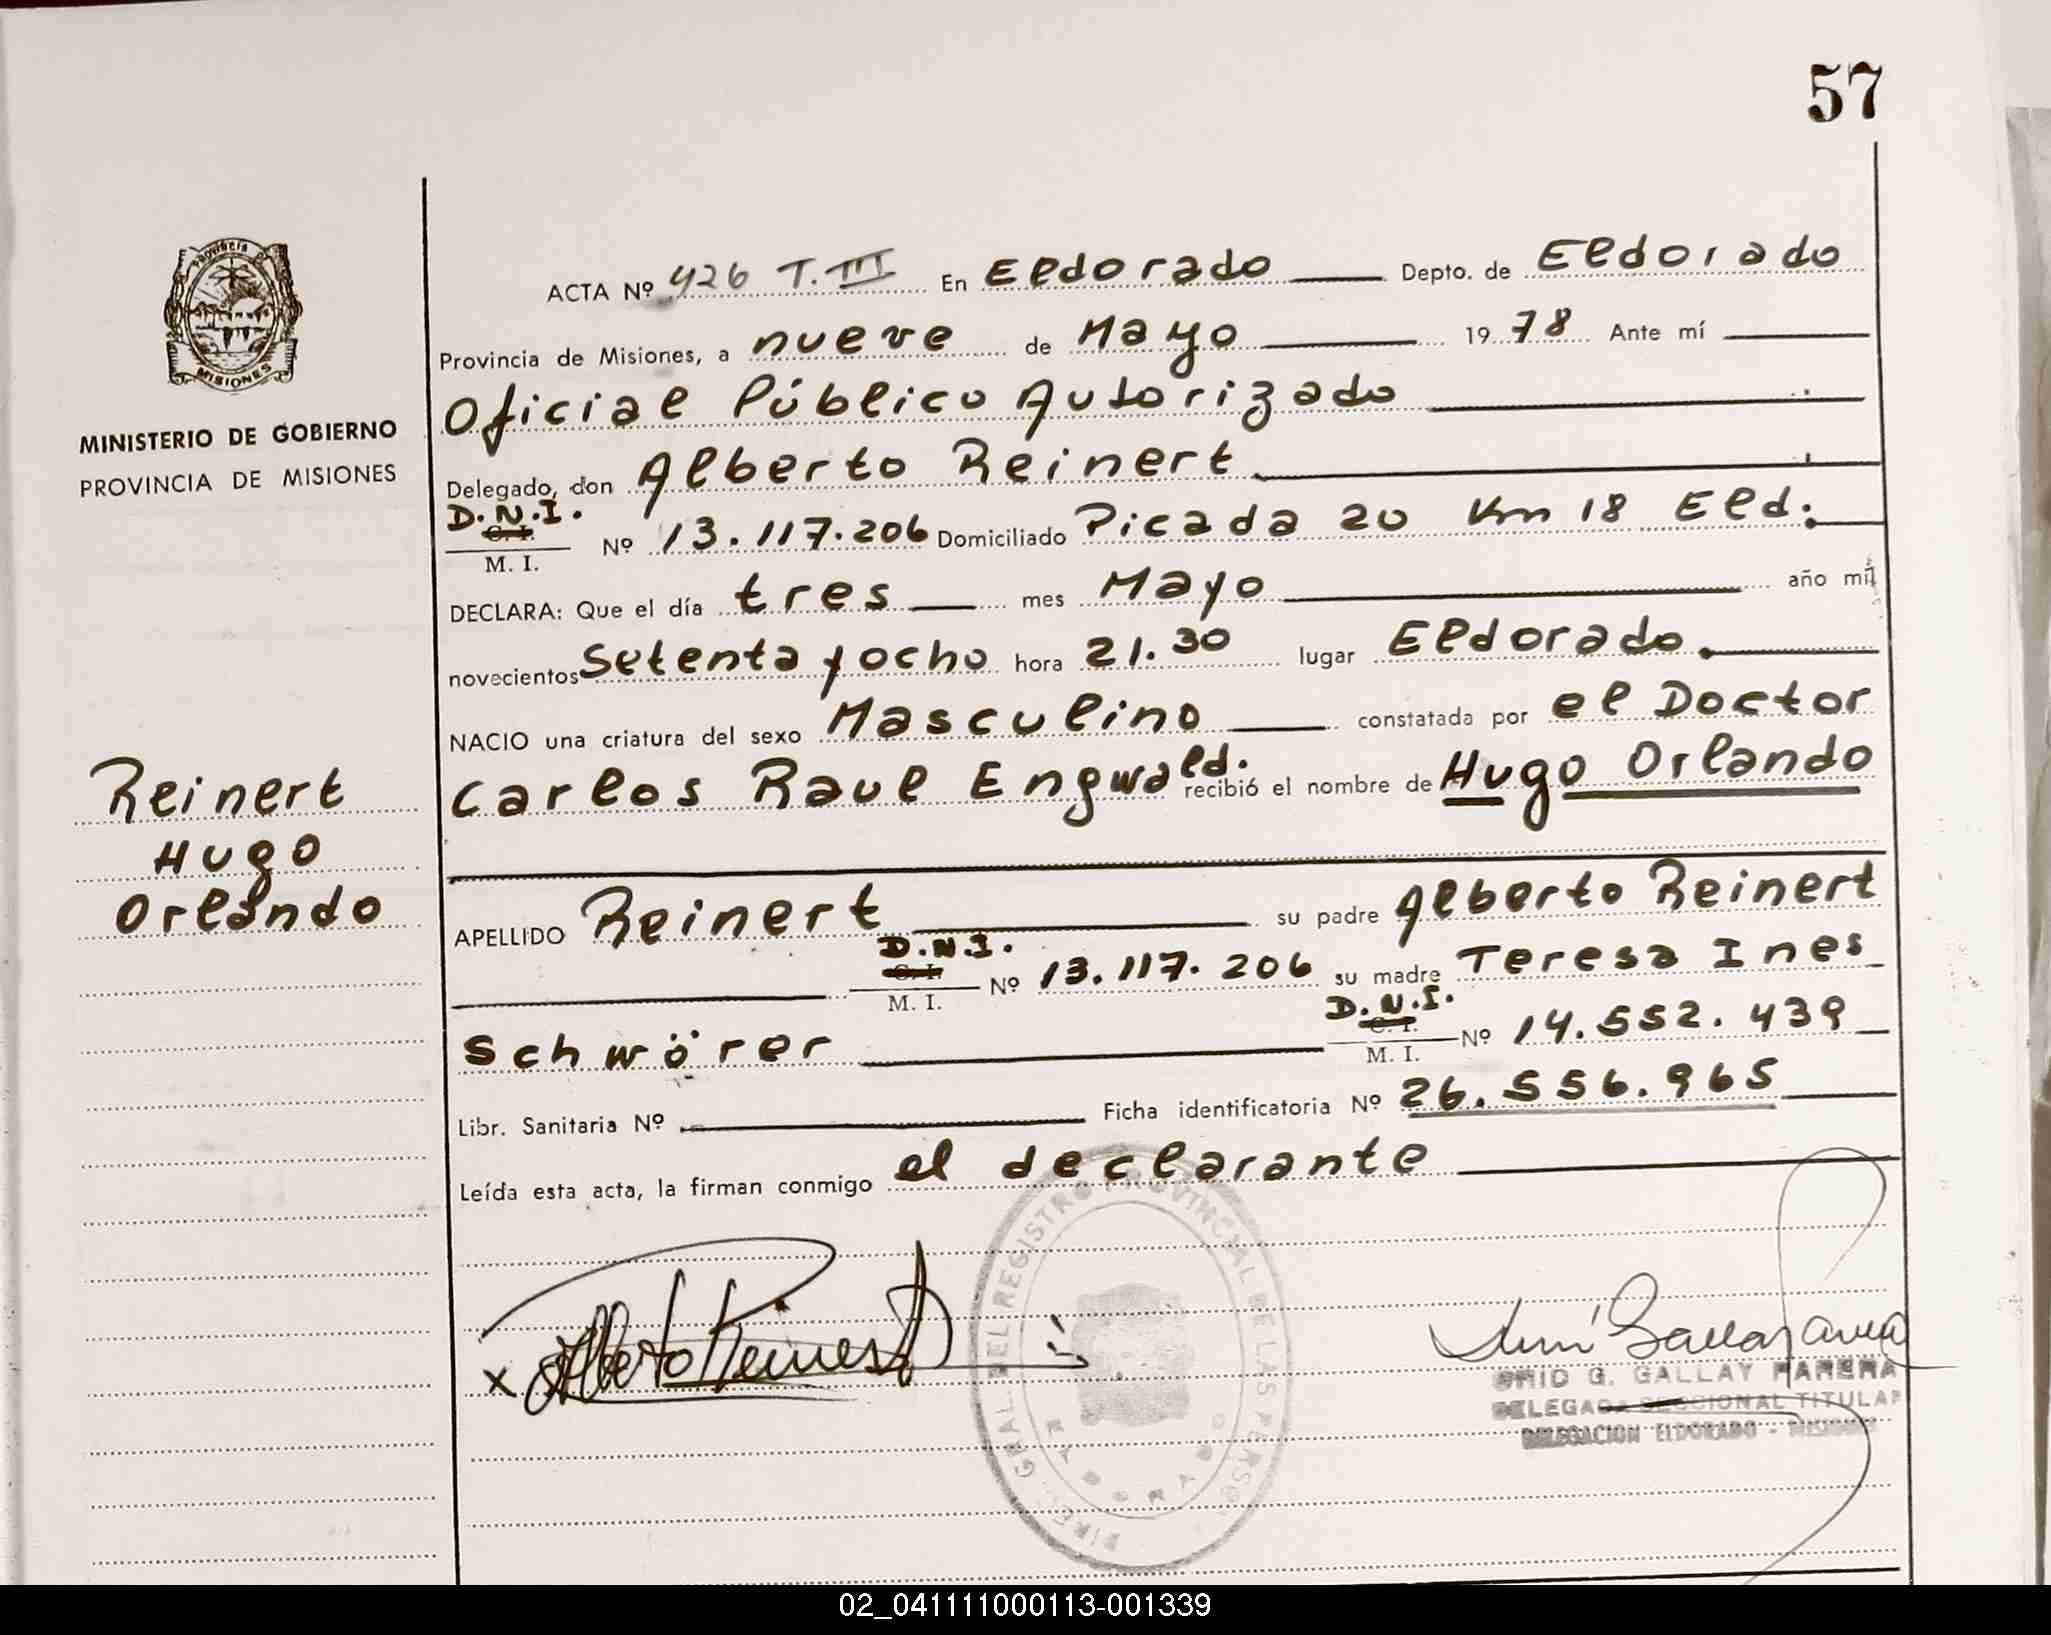 57
PROVINCIA
MISIONES
MINISTERIO DE GOBIERNO
PROVINCIA DE MISIONES
Reinert
Hugo
Orlando
ACTA Nº 426 T. III En Eldorado Depto. de Eldorado
Provincia de Misiones, a nueve de Mayo 19 78 Ante mí
Oficial Público Autorizado
Delegado, don Alberto Reinert
D.N.I.
C. I.
M. I. Nº 13.117.206 Domiciliado Picada 20 Km 18 Eld.
DECLARA: Que el día tres mes Mayo año mil
novecientos Setenta y ocho hora 21.30 lugar Eldorado.
NACIO una criatura del sexo Masculino constatada por el Doctor
Carlos Raul Engwald. recibió el nombre de Hugo Orlando
APELLIDO Reinert su padre Alberto Reinert
D.N.I.
C. I.
M. I. Nº 13.117.206 su madre Teresa Ines
Schwörer D.N.I.
C. I.
M. I. Nº 14.552.439
Libr. Sanitaria Nº Ficha identificatoria Nº 26.556.965
Leída esta acta, la firman conmigo el declarante
x Alberto Reinert
DIREC. GRAL. DEL REGISTRO PROVINCIAL DE LAS PERSONAS
ELDORADO
G. GALLAY PARERA
DELEGADA SECCIONAL TITULAR
DELEGACION ELDORADO - MISIONES
02_041111000113-001339